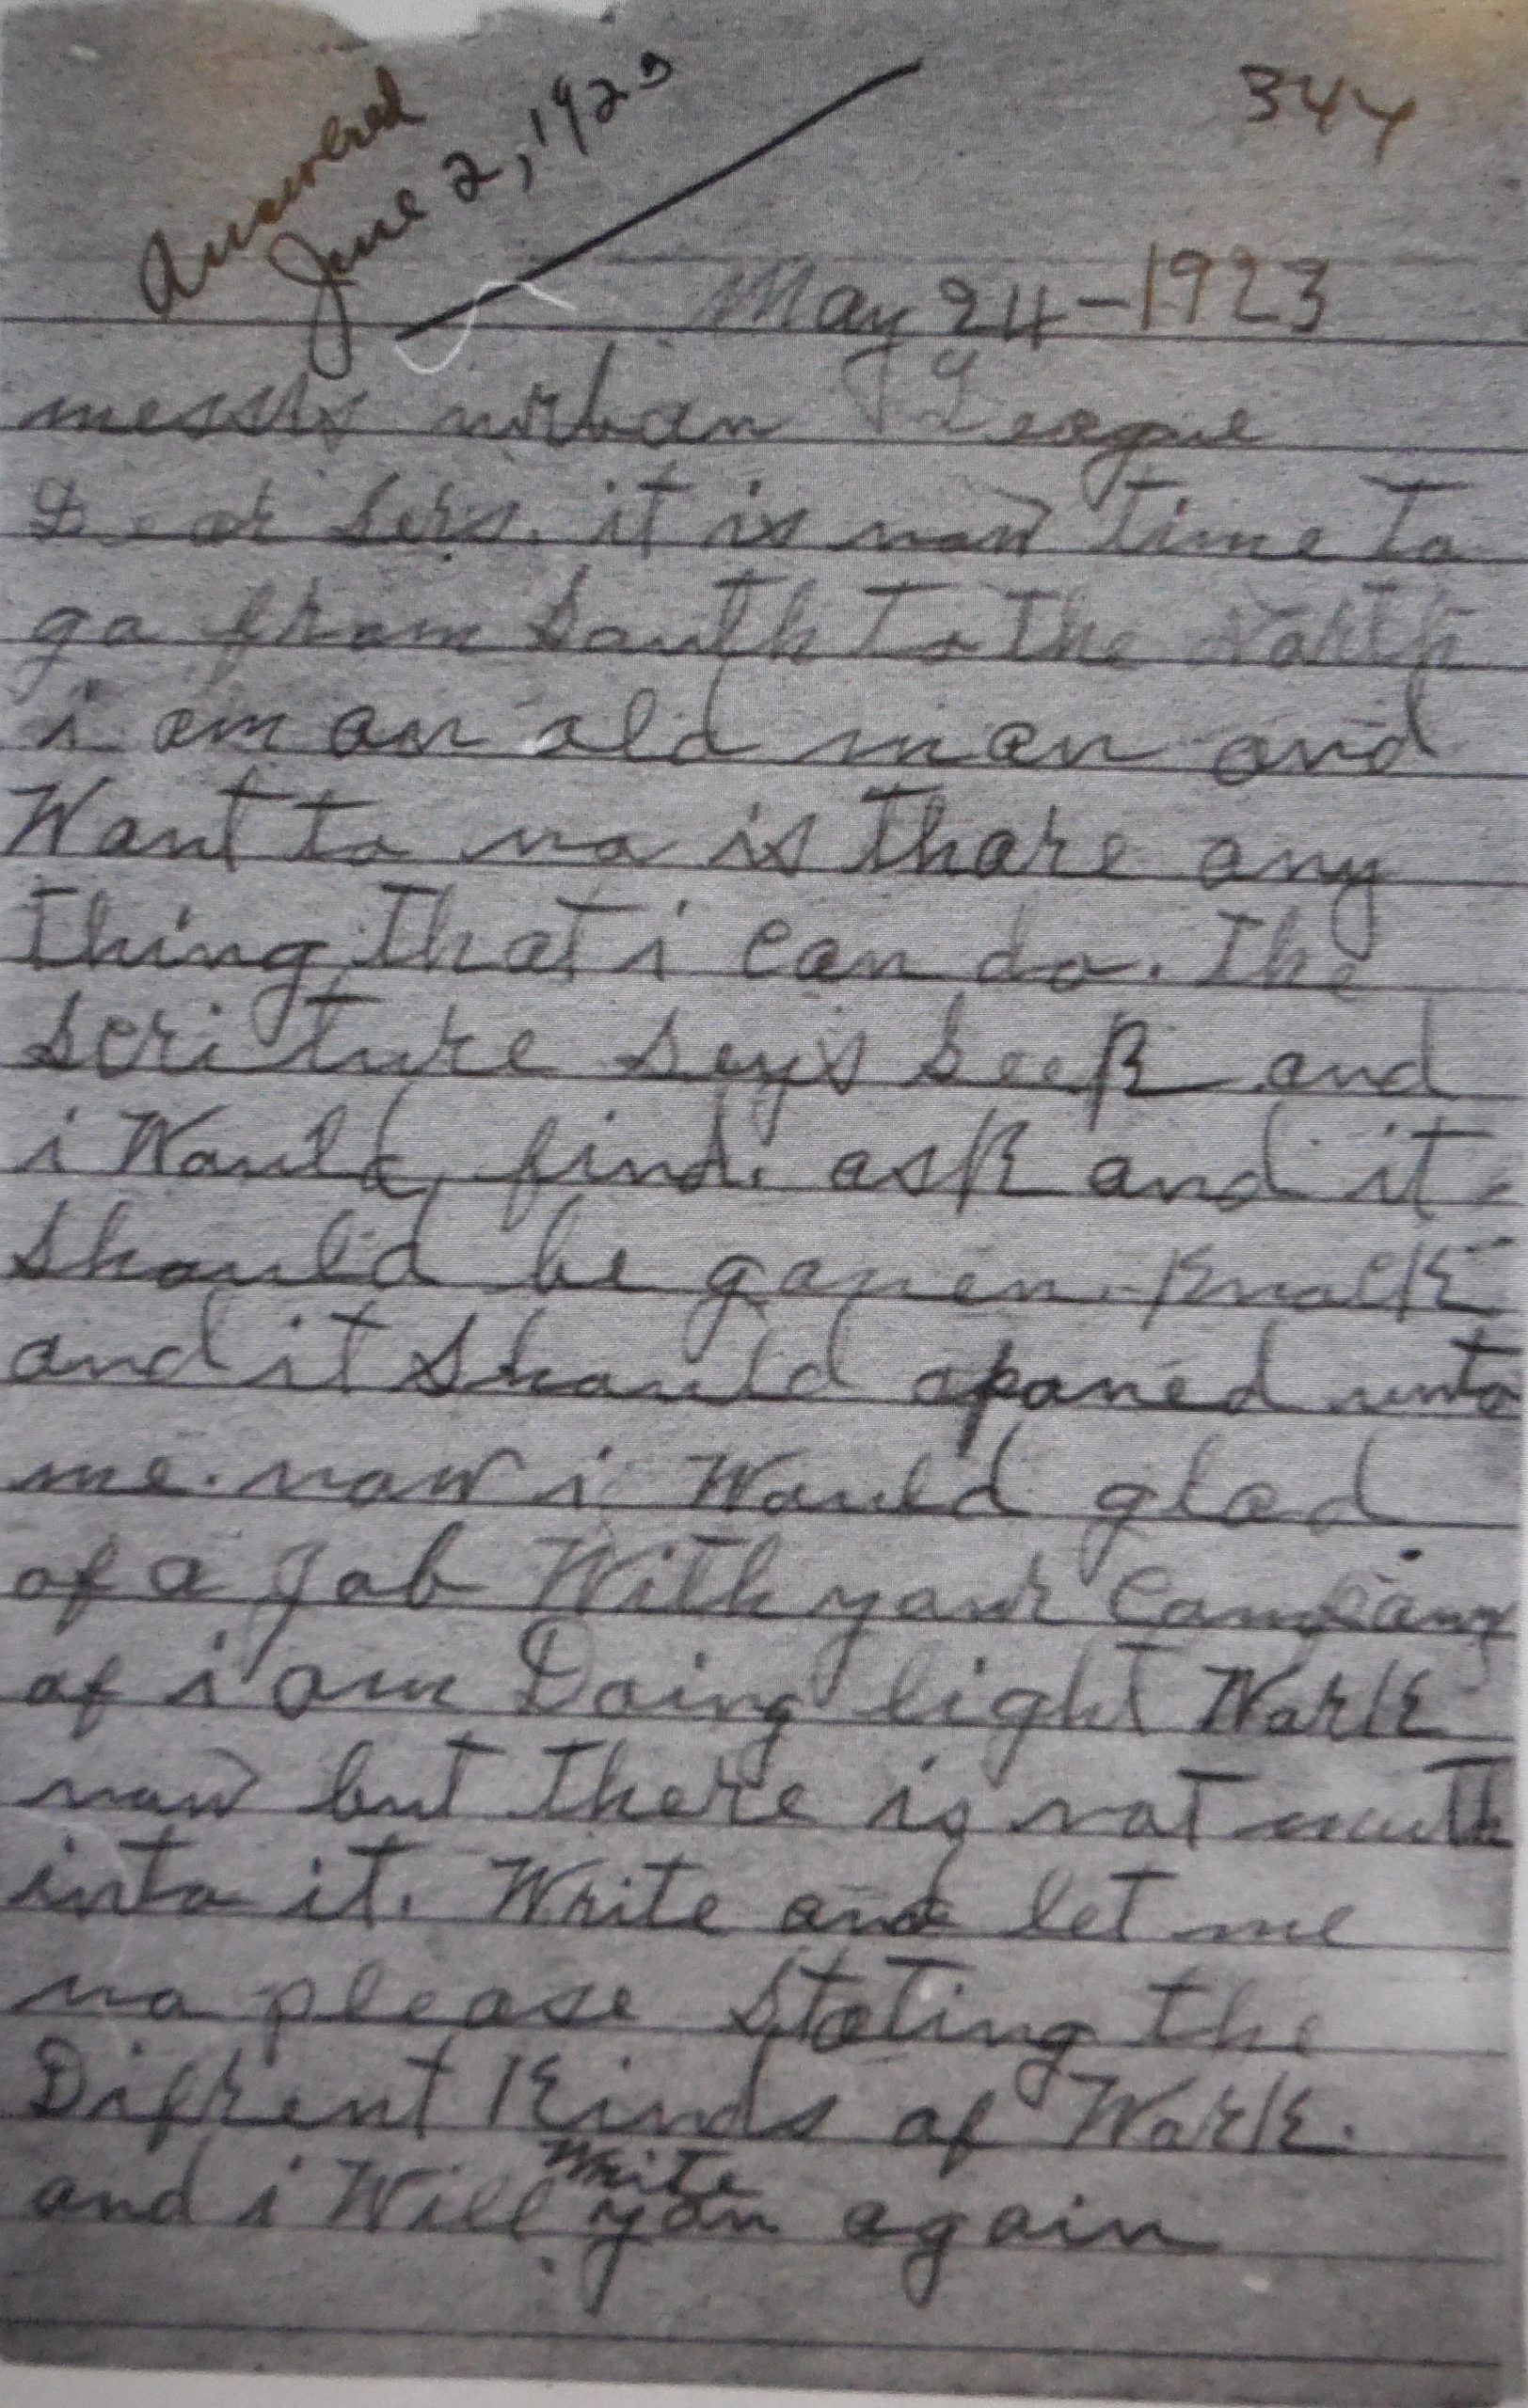 Answered
June 2, 1923
344
May 24-1923
messrs urban League
Dear sers. it is now time to
go from South to the North
i am an old man and
Want to no is thare any
thing that i can do. The
scriture seys seek and
i Would find. ask and it
should be gaven. Knock
and it should opaned unto
me. now i Would glad
of a job With your Company
of i am Doing light Work
now but there is not much
into it. Write and let me
no please stating the
Difrent Kinds of Work.
and i Will Write you again